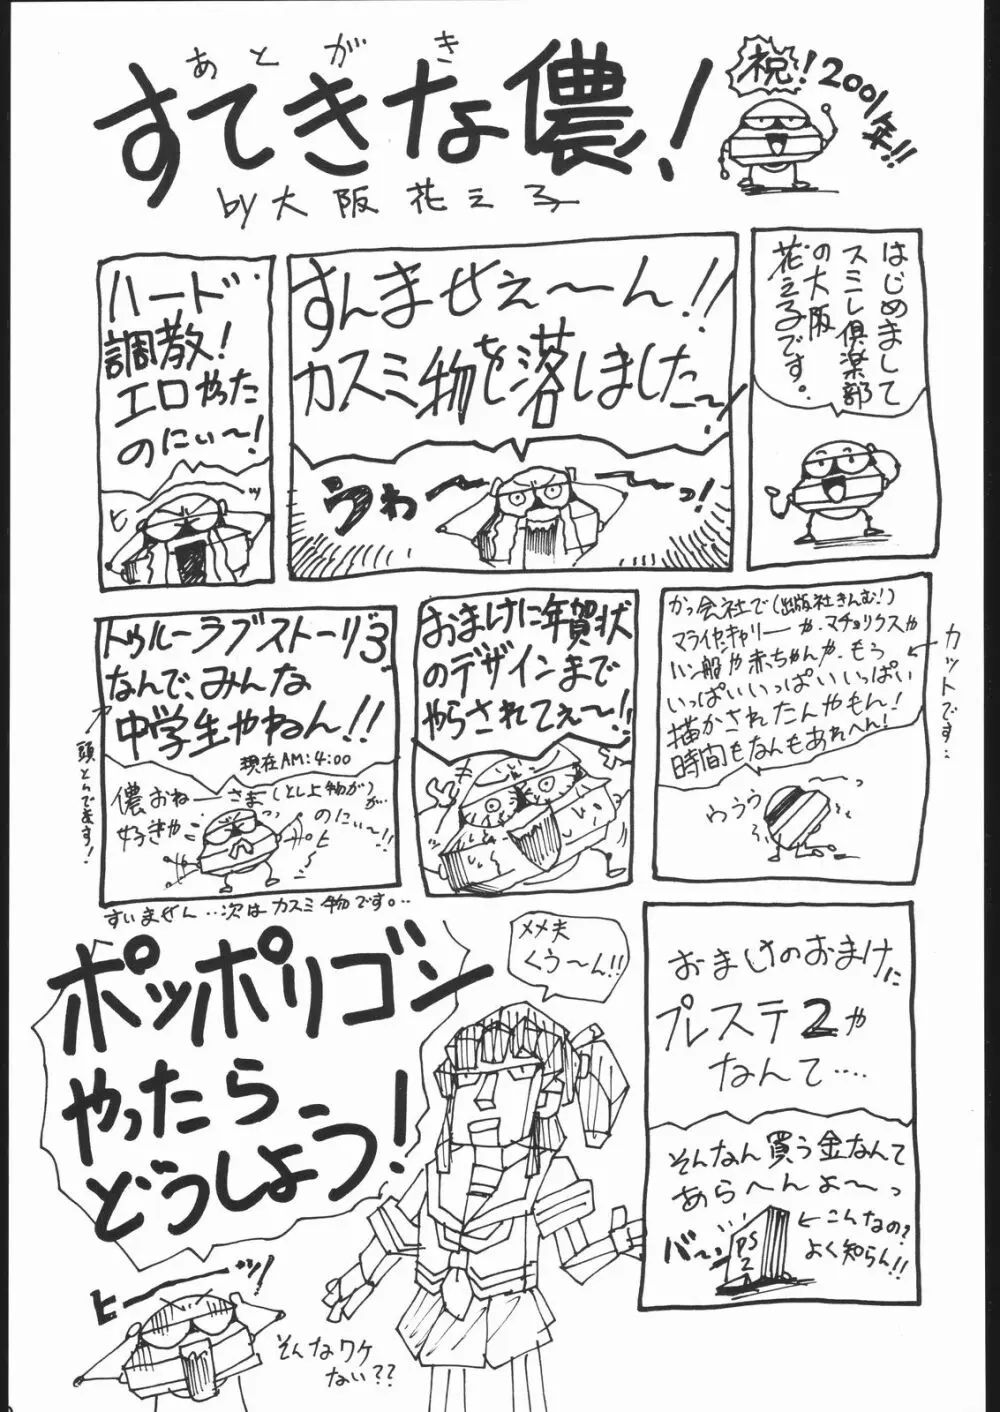 あとがき
すてきな儂!
by大阪花え子
祝!2001年!!
はじめまして
スミレ倶楽部
の大阪
花え子です。
すんませぇ〜ん!!
カスミ物を落しました〜!
うわ〜〜っ!
ハード
調教!
エロやった
のにぃ〜!
ヒーッ
かっ会社で(出版社きんむ!)
マライヤ・キャリーや、マチョリクスや
ハン般や赤ちゃんや、もう
いっぱいいっぱいいっぱい
描かされたんやもん!
時間もなんもあれへん!
←カットです…
わううう
おまけに年賀状
のデザインまで
やらされてぇ〜!!
トゥルーラブストーリー3
なんで、みんな
中学生やねん!!
現在AM:4:00
頭とんでます!
儂おねーさま(とし上物が)が…
好きや
のにぃ〜!!
ヒ
すいません…次はカスミ物です。…
おまけのおまけに
プレステ2や
なんて….
そんなん買う金なんて
あらへんよ〜っ
バ〜ン
PS2
←こんなの?
よく知らん!!
メメ夫
くう〜ん!!
ポッポリゴン
やったら
どうしよう!
ヒーーッ!
そんなワケ
ない??